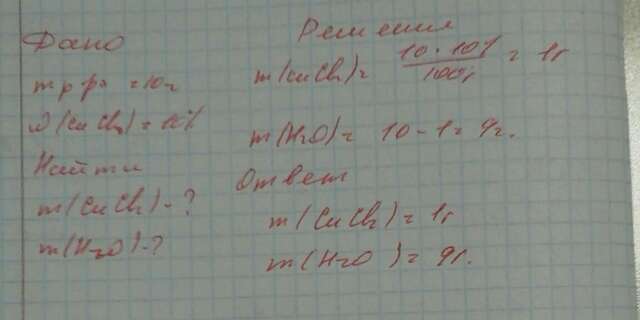 Дано
m р-ра = 10г
ω(CuCl₂) = 10%
Найти
m(CuCl₂) - ?
m(H₂O) - ?
Решения
m(CuCl₂) = 10 · 10% / 100% = 1г
m(H₂O) = 10 - 1 = 9г.
Ответ
m(CuCl₂) = 1г
m(H₂O) = 9г.